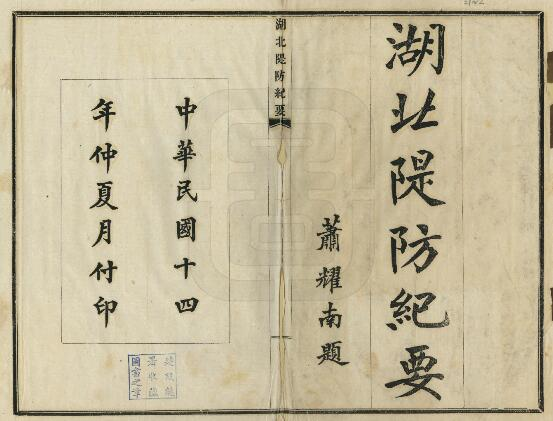 湖北隄防紀要
蕭耀南題
湖北隄防紀要
中華民國十四
年仲夏月付印
圖書之章